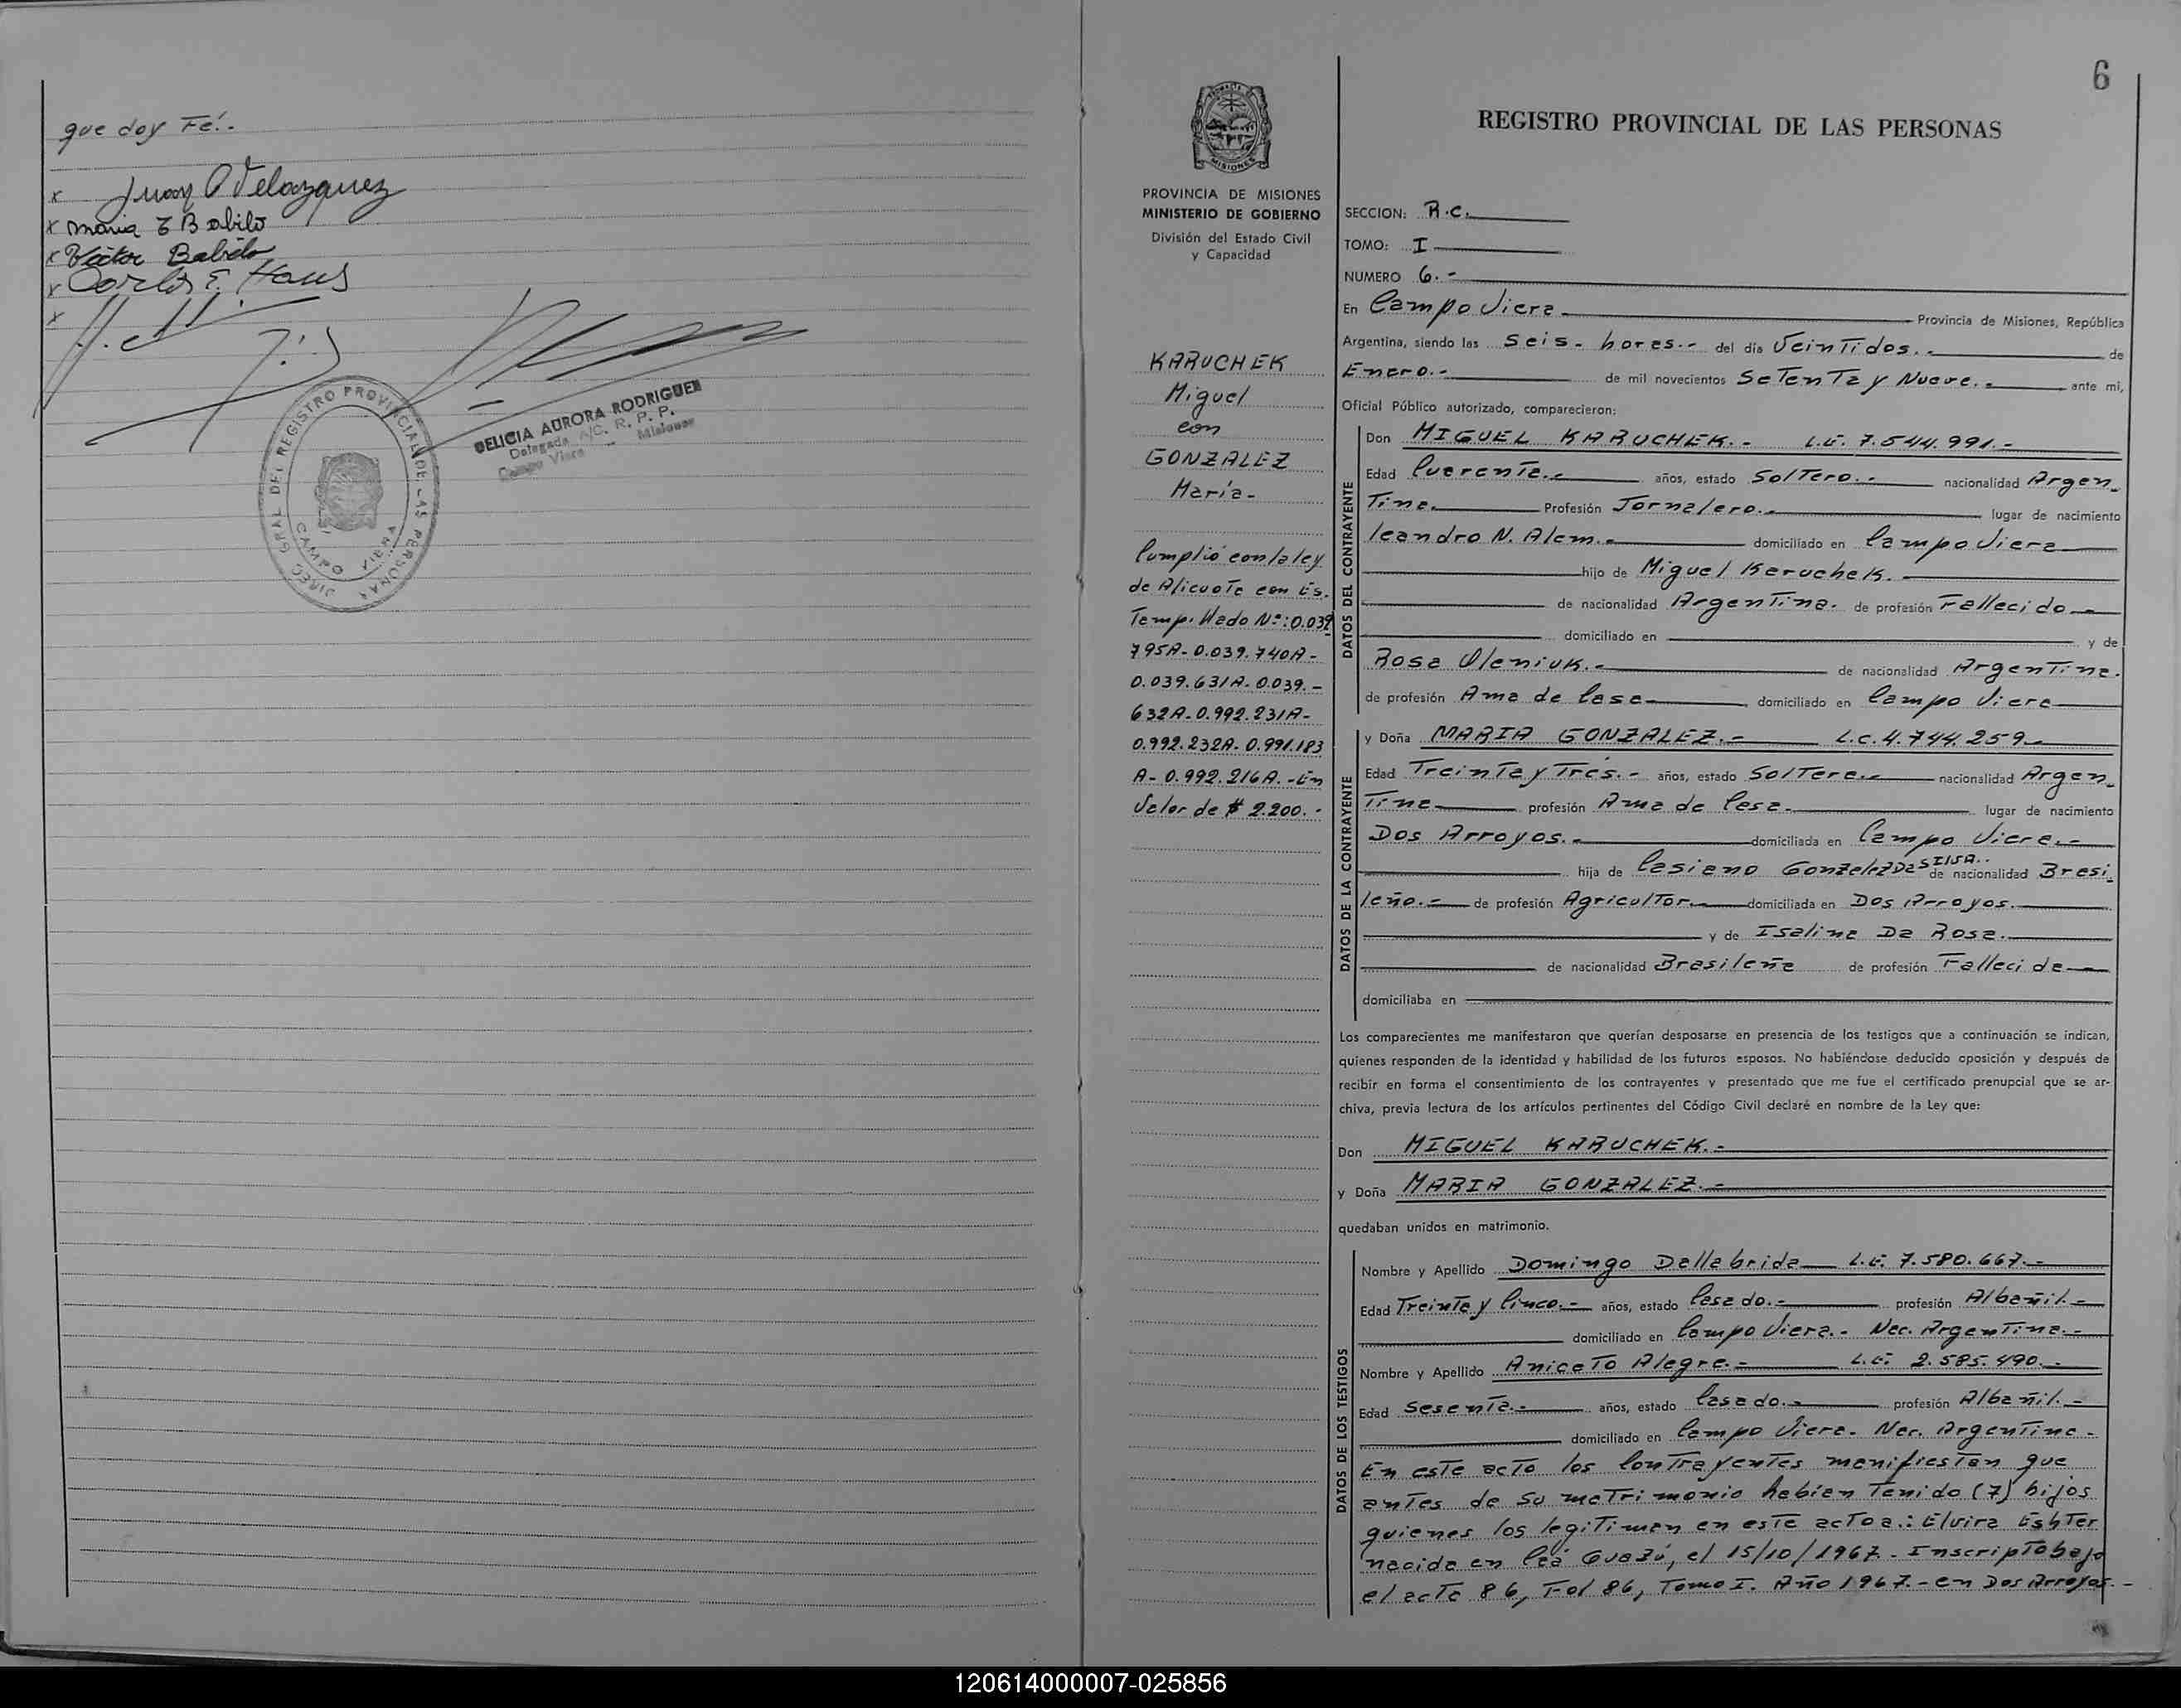 que doy Fé.-
x Juan O Velazquez
x maria E Babilo
x Victor Babilo
x Carlos E. Haus
x
DELICIA AURORA RODRIGUEZ
Delegada A/C. R. P. P.
Campo Viera - Misiones
DIREC. GRAL DEL REGISTRO PROVINCIAL DE LAS PERSONAS
CAMPO VIERA
6
REGISTRO PROVINCIAL DE LAS PERSONAS
MISIONES
PROVINCIA DE MISIONES
MINISTERIO DE GOBIERNO
División del Estado Civil
y Capacidad
KARUCHEK
Miguel
con
GONZALEZ
María-
Cumplió con la ley
de Alicuota con Es.
Tamp. llado Nº: 0.039
795A-0.039.740A-
0.039.631A-0.039.-
632A-0.992.231A-
0.992.232A-0.991.183
A-0.992.216A.-En
Valor de $ 2.200.-
SECCION: R.C.
TOMO: I
NUMERO 6.-
En Campo Viera Provincia de Misiones, República
Argentina, siendo las Seis- horas.- del día Veintidos.- de
Enero.- de mil novecientos Setenta y Nueve.- ante mi,
Oficial Público autorizado, comparecieron:
DATOS DEL CONTRAYENTE
Don MIGUEL KARUCHEK.- L.E. 7.544.991.-
Edad Cuarenta.- años, estado Soltero.- nacionalidad Argen-
tina. Profesión Jornalero.- lugar de nacimiento
leandro N. Alem.- domiciliado en Campo Viera
hijo de Miguel Karuchek.-
de nacionalidad Argentina. de profesión Fallecido.-
domiciliado en y de
Rosa Oleniuk.- de nacionalidad Argentina.
de profesión Ama de Casa domiciliado en Campo Viera
DATOS DE LA CONTRAYENTE
y Doña MARIA GONZALEZ.- L.C. 4.744.259-
Edad Treinta y Tres.- años, estado Soltera.- nacionalidad Argen-
tina profesión Ama de Casa.- lugar de nacimiento
Dos Arroyos.- domiciliada en Campo Viera.-
hija de Casiano Gonzalez Da SILVA.. de nacionalidad Brasi-
leño.- de profesión Agricultor. domiciliada en Dos Arroyos.
y de Isalina Da Rosa.
de nacionalidad Brasileña de profesión Fallecida
domiciliaba en
Los comparecientes me manifestaron que querían desposarse en presencia de los testigos que a continuación se indican,
quienes responden de la identidad y habilidad de los futuros esposos. No habiéndose deducido oposición y después de
recibir en forma el consentimiento de los contrayentes y presentado que me fue el certificado prenupcial que se ar-
chiva, previa lectura de los artículos pertinentes del Código Civil declaré en nombre de la Ley que:
Don MIGUEL KARUCHEK.-
y Doña MARIA GONZALEZ.-
quedaban unidos en matrimonio.
DATOS DE LOS TESTIGOS
Nombre y Apellido Domingo Dellabrida L.E. 7.580.667.-
Edad Treinta y Cinco.- años, estado Casado.- profesión Albañil.-
domiciliado en Campo Viera.- Nac. Argentina.-
Nombre y Apellido Aniceto Alegre.- L.E. 2.585.490.-
Edad Sesenta.- años, estado Casado.- profesión Albañil.-
domiciliado en Campo Viera- Nac. Argentina-
En este acto los Contrayentes manifiestan que
antes de su matrimonio habían tenido (7) hijos
quienes los legitiman en este acto a.: Elvira Eshter
nacida en Caá Guazú, el 15/10/1967.- Inscripto bajo
el acta 86, Fol 86, Tomo I. Año 1967.- en Dos Arroyos.-
120614000007-025856